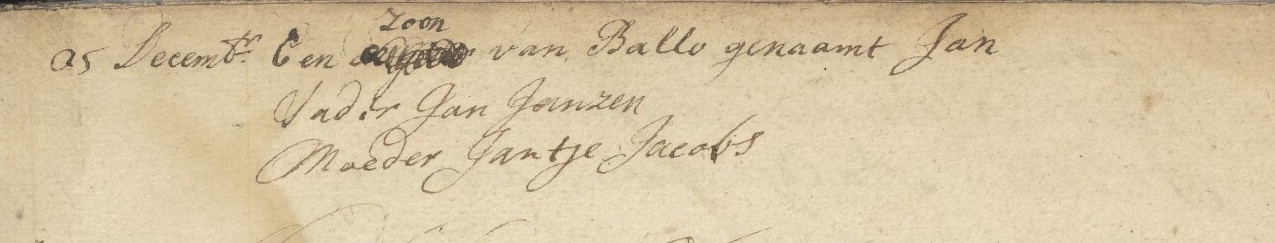 zoon
25 Decembr. Een van Ballo genaamt Jan
Vader Jan Janzen
Moeder Jantje Jacobs